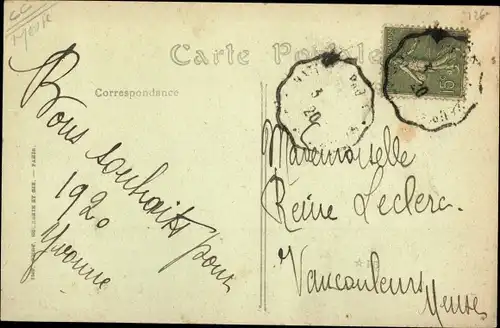 Carte Postale
Correspondance
Bons souhaits pour
1920
Yvonne
Mademoiselle
Reine Leclerc
Vaucouleurs
Meuse